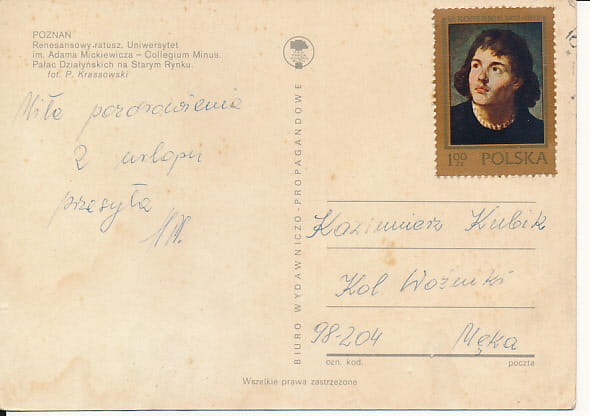 POZNAŃ
Renesansowy ratusz, Uniwersytet
im. Adama Mickiewicza – Collegium Minus.
Pałac Działyńskich na Starym Rynku.
fot. P. Krassowski
Miłe pozdrowienia
z urlopu
przesyła
BIURO WYDAWNICZO-PROPAGANDOWE
1.00 zł POLSKA
Kazimierz Kubik
Kol Woźniki
98-204 Męka
ozn. kod. poczta
Wszelkie prawa zastrzeżone